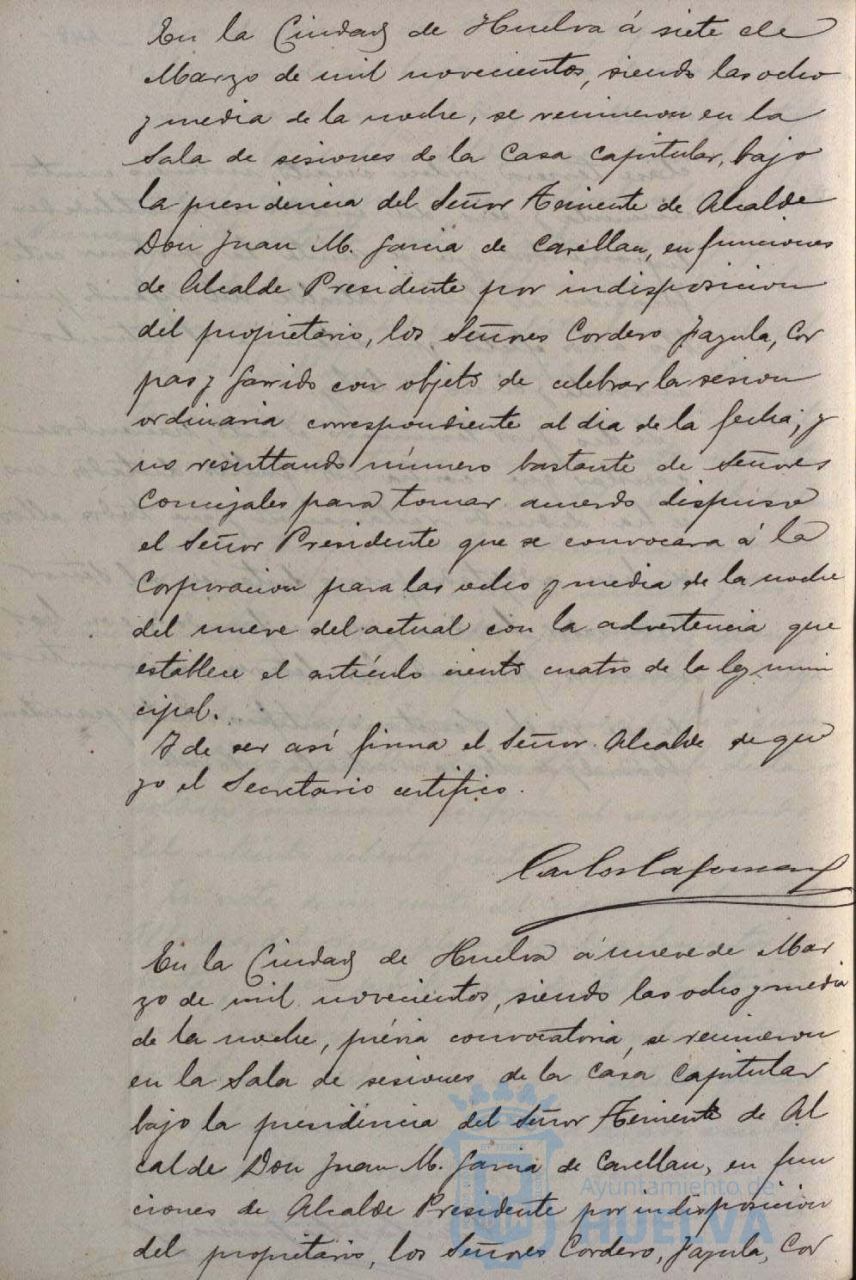 En la Ciudad de Huelva á siete de
Marzo de mil novecientos, siendo las ocho
y media de la noche, se reunieron en la
Sala de sesiones de la Casa Capitular, bajo
la presidencia del Señor Teniente de Alcalde
Don Juan M. Garcia de Carellan, en funciones
de Alcalde Presidente por indisposicion
del propietario, los Señores Cordero, Jazula, Cor
pas y Garrido con objeto de celebrar la sesion
ordinaria correspondiente al dia de la fecha; y
no resultando número bastante de Señores
Concejales para tomar acuerdo dispuso
el Señor Presidente que se convocara á la
Corporacion para las ocho y media de la noche
del nueve del actual con la advertencia que
establece el artículo ciento cuatro de la ley muni
cipal.
Y de ser así firma el Señor Alcalde de que
yo el Secretario certifico.
Carlos
En la Ciudad de Huelva á nueve de Mar
zo de mil novecientos, siendo las ocho y media
de la noche, prévia convocatoria, se reunieron
en la Sala de sesiones de la Casa Capitular
bajo la presidencia del Señor Teniente de Al
calde Don Juan M. Garcia de Carellan, en fun
ciones de Alcalde Presidente por indisposicion
del propietario, los Señores Cordero, Jazula, Cor
Ayuntamiento de
HUELVA